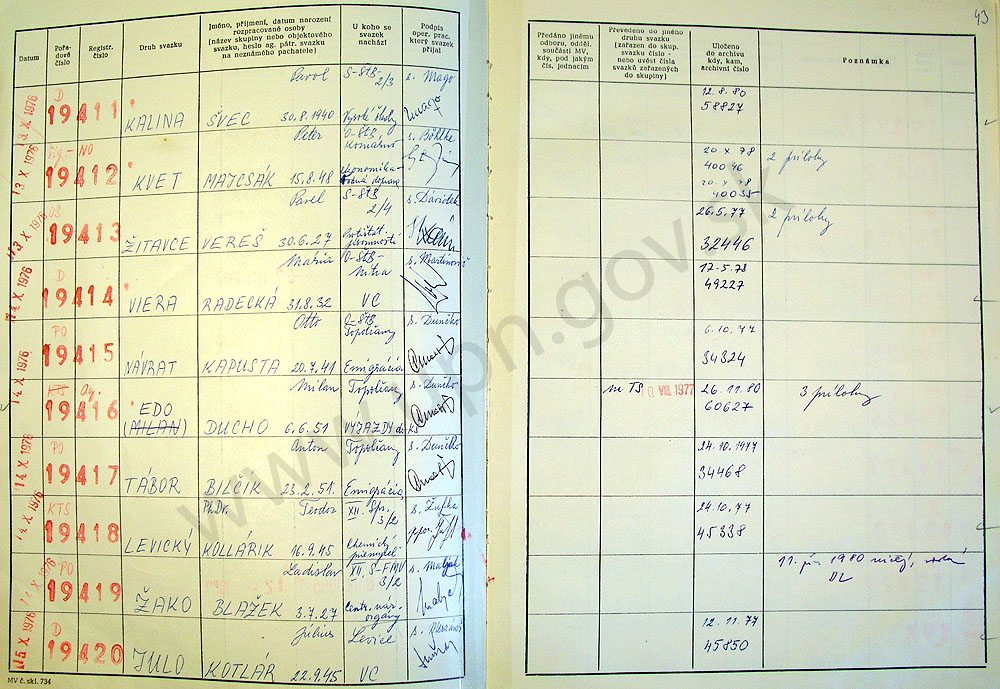 43
Datum
Pořadové číslo
Registr. číslo
Druh svazku
Jméno, příjmení, datum narození rozpracované osoby (název skupiny nebo objektového svazku, heslo ag. pátr. svazku na neznámého pachatele)
U koho se svazek nachází
Podpis oper. prac. který svazek přijal
Předáno jinému odboru, odděl. součásti MV, kdy, pod jakým čís. jednacím
Převedeno do jiného druhu svazku (zařazen do skup. svazku číslo - nebo uvést čísla svazků zařazených do skupiny)
Uloženo do archivu kdy, kam, archivní číslo
Poznámka
D
Pavol S-ŠtB 2/3 s. Mago
X 1976 19411 KALINA ŠVEC 30.8.1940 Vysoké školy
12.8.80
58827
NO
Peter O-ŠtB Komárno s. Böhlke
13 X 1976 19412 KVET MAJCSÁK 15.8.48
20 X 78
40046
2 prílohy
40035
Pavel S-ŠtB 2/4 s. Dávidek
13 X 1976 19413 ŽITAVCE VEREŠ 30.6.27
26.5.77
32446
2 prílohy
D
Mária O-ŠtB Nitra
X 1976 19414 VIERA RADECKÁ 31.8.32 VC
17.5.78
49227
PO
Otto O-ŠtB Topoľčany s. Dunčko
14 X 1976 19415 NÁVRAT KAPUSTA 20.7.41 Emigrácia
6.10.77
34324
KTS Ag.
Milan Topoľčany s. Dunčko
14 X 1976 19416 EDO
(MILAN) DUCHO 6.6.51 VÝJAZDY do KS
TS VIII 1977
26.11.80
60627
3 prílohy
PO
Anton Topoľčany s. Dunčko
14 X 1976 19417 TÁBOR BILČIK 23.2.51. Emigrácia
24.10.1977
34468
KTS
PhDr. Teodor XII. Spr. 3/2 s. Žufka
X 1976 19418 LEVICKÝ KOLLÁRIK 16.9.45 Chemický priemysel
24.10.77
45338
PO
Ladislav XII. S-FMV 3/2
X 1976 19419 ŽAKO BLAŽEK 3.7.27 Centr. nár. orgány
11. jún 1980
D
Július Levice
15 X 1976 19420 JULO KOTLÁR 22.9.45 VC
12.11.77
45850
MV č. skl. 734
www.upn.gov.sk